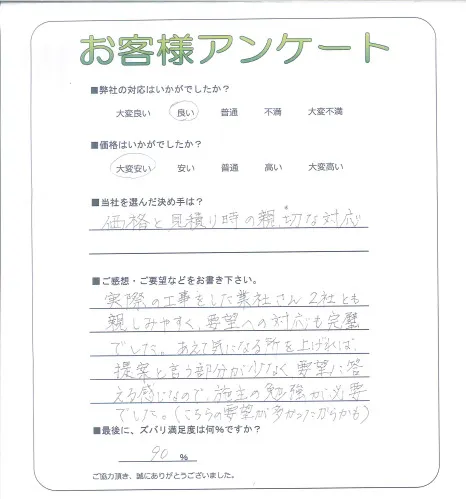 お客様アンケート
■弊社の対応はいかがでしたか？
大変良い 良い 普通 不満 大変不満
■価格はいかがでしたか？
大変安い 安い 普通 高い 大変高い
■当社を選んだ決め手は？
価格と見積り時の親切な対応
■ご感想・ご要望などをお書き下さい。
実際の工事をした業社さん 2社とも
親しみやすく、要望への対応も完璧
でした。あえて気になる所を上げれば、
提案と言う部分が少なく要望に答
える感じなので、施主の勉強が必要
でした。（こちらの要望が多かったからかも）
■最後に、ズバリ満足度は何％ですか？
90 %
ご協力頂き、誠にありがとうございました。